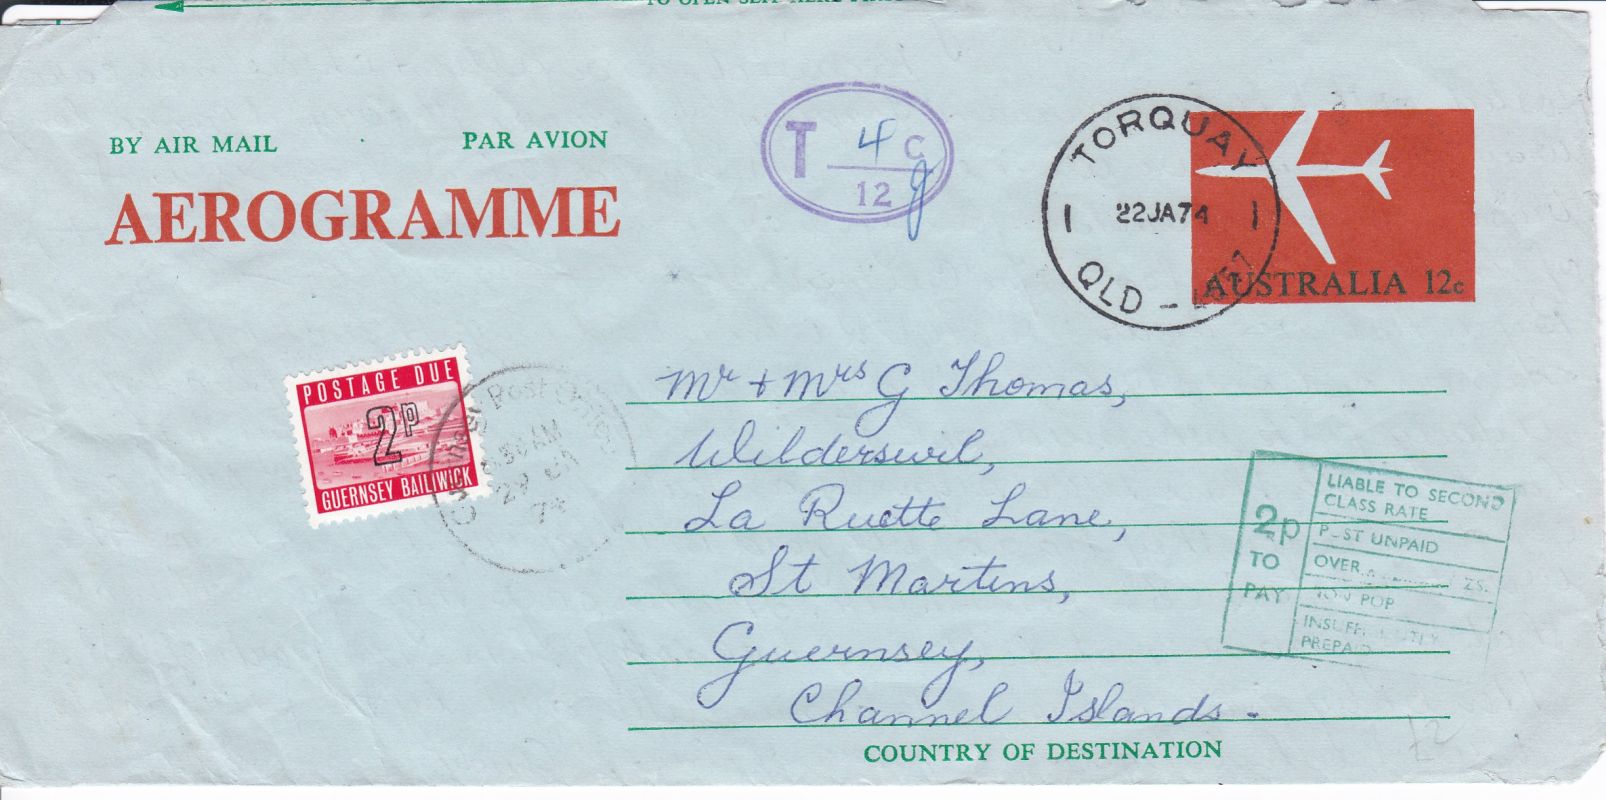 TO OPEN SLIT HERE FIRST
BY AIR MAIL PAR AVION
AEROGRAMME
T 4 c
12
TORQUAY
22JA74
QLD - 4657
AUSTRALIA 12c
POSTAGE DUE
2p
GUERNSEY BAILIWICK
Post Office
AM
29
74
Mr + Mrs G Thomas,
Wilderswil,
La Ruette Lane,
St Martins,
Guernsey,
Channel Islands.
COUNTRY OF DESTINATION
2p
TO
PAY
LIABLE TO SECOND
CLASS RATE
POST UNPAID
OVER ZS.
NON POP
INSUFFICIENTLY
PREPAID
£2